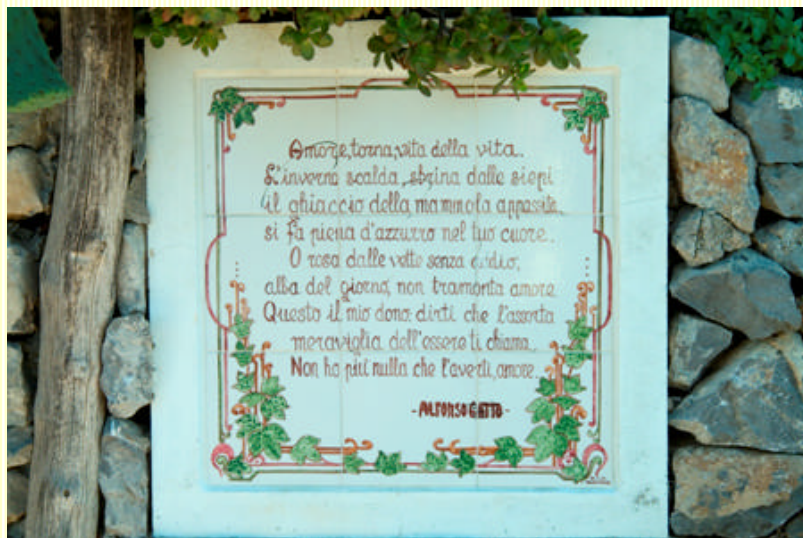 Amore, torna, vita della vita.
L'inverno scalda, sbrina dalle siepi
il ghiaccio della mammola appassita,
si fa piena d'azzurro nel tuo cuore.
O rosa dalle vette senza
alba del giorno, non tramonta amore
Questo il mio dono: dirti che l'assorta
meraviglia dell'essere ti chiama.
Non ho più nulla che l'averti, amore.
- ALFONSO GATTO -